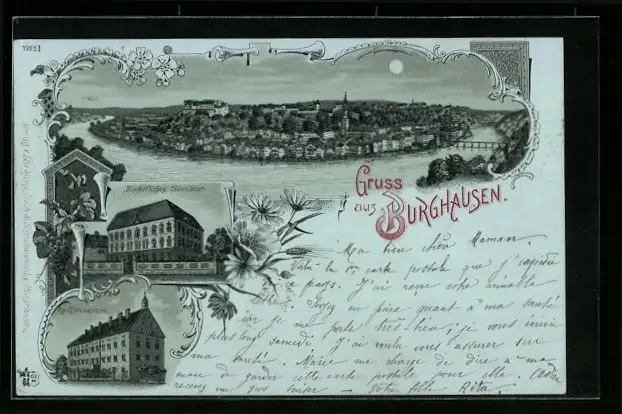 12851
Gruss
aus BURGHAUSEN.
Bischöfliches Seminar.
Kgl. Gymnasium.
Ma bien chère Maman.
Voilà la carte postale que j'
pays. J'ai reçu votre aimable
lettre. Soyez en paix quant à ma santé
car je me porte très bien; je vous écrirai
plus long samedi. J'ai voulu vous assurer sur
ma santé. Marie me charge de dire à ma
man de garder cette carte postale pour elle.
recevez un gros baiser. Votre fille Rita.